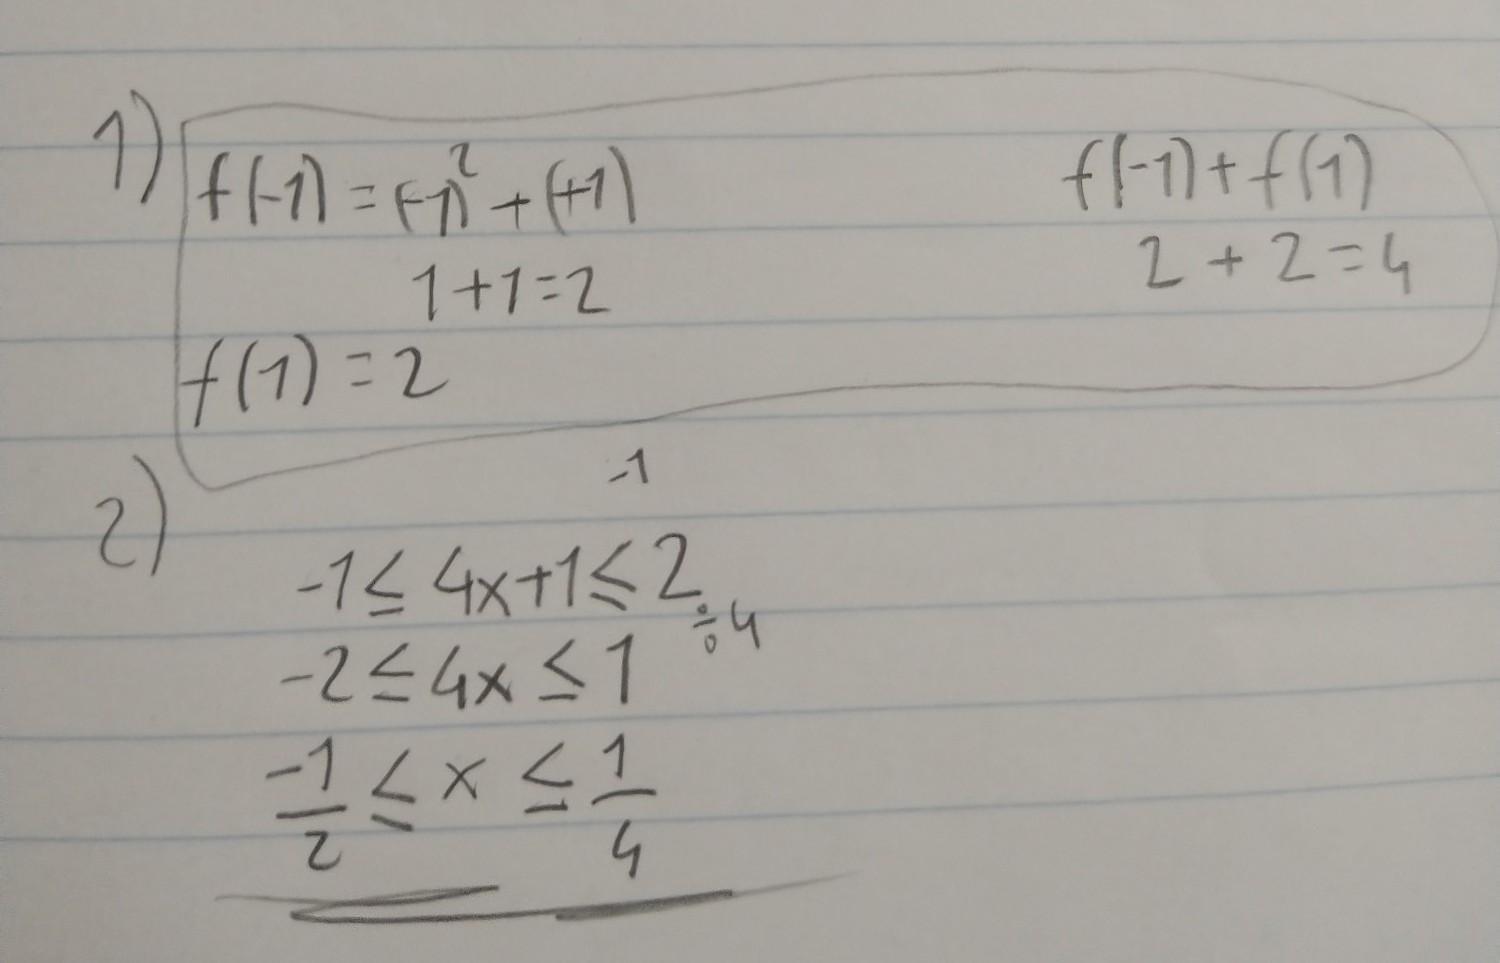 1)
f(-1) = (-1)² + (+1)
1+1=2
f(1) = 2
f(-1) + f(1)
2 + 2 = 4
2)
-1
-1 ≤ 4x+1 ≤ 2
÷4
-2 ≤ 4x ≤ 1
-1/2 ≤ x ≤ 1/4